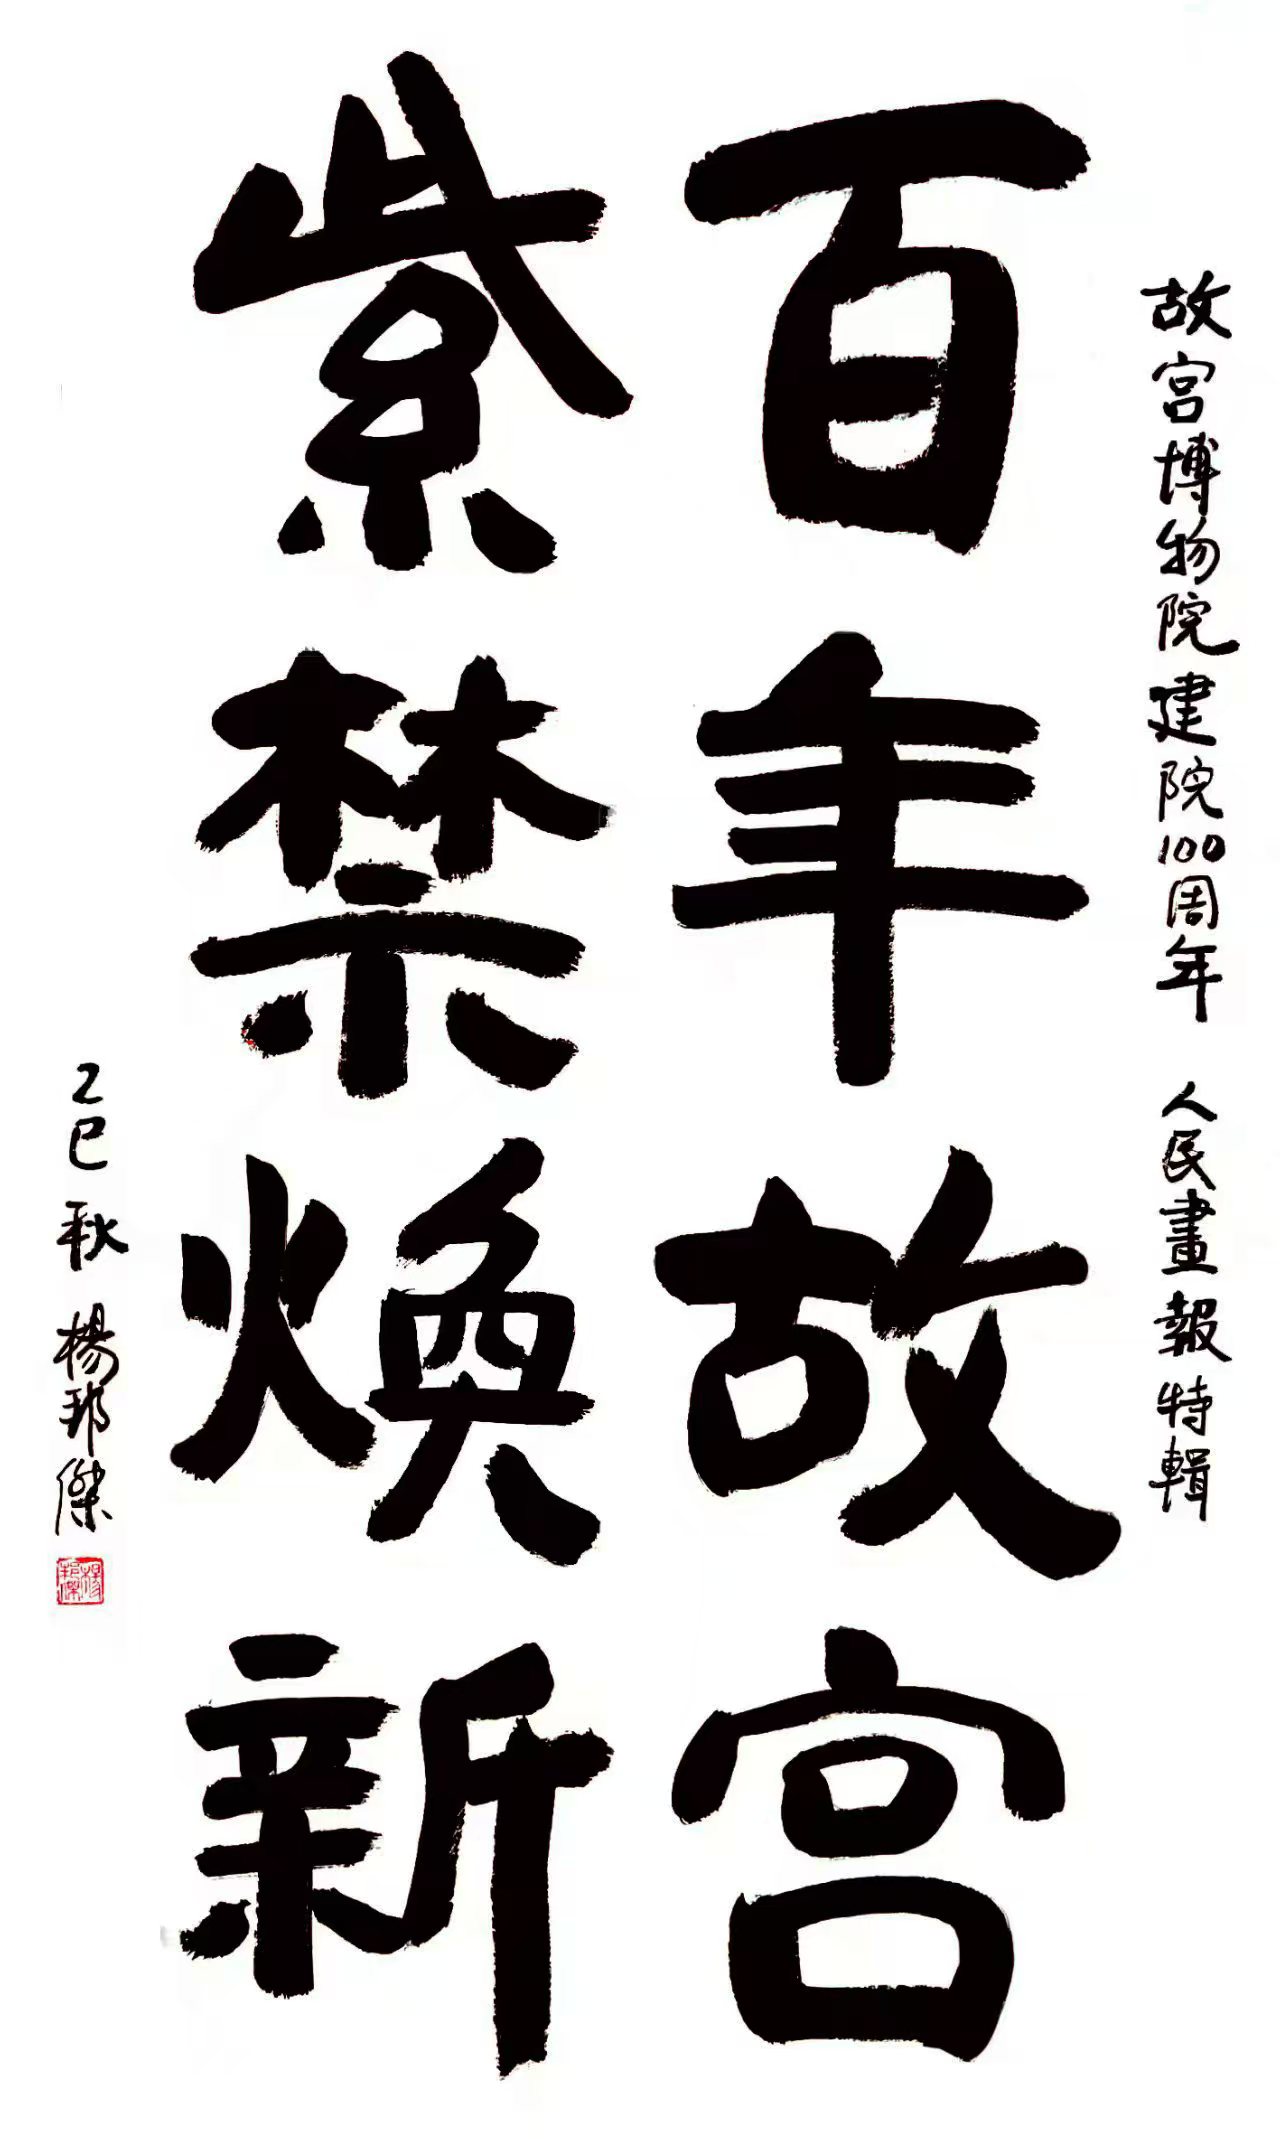 故宫博物院建院100周年 人民畫報特輯
百年故宫
紫禁煥新
乙巳秋 楊邦傑
楊邦傑